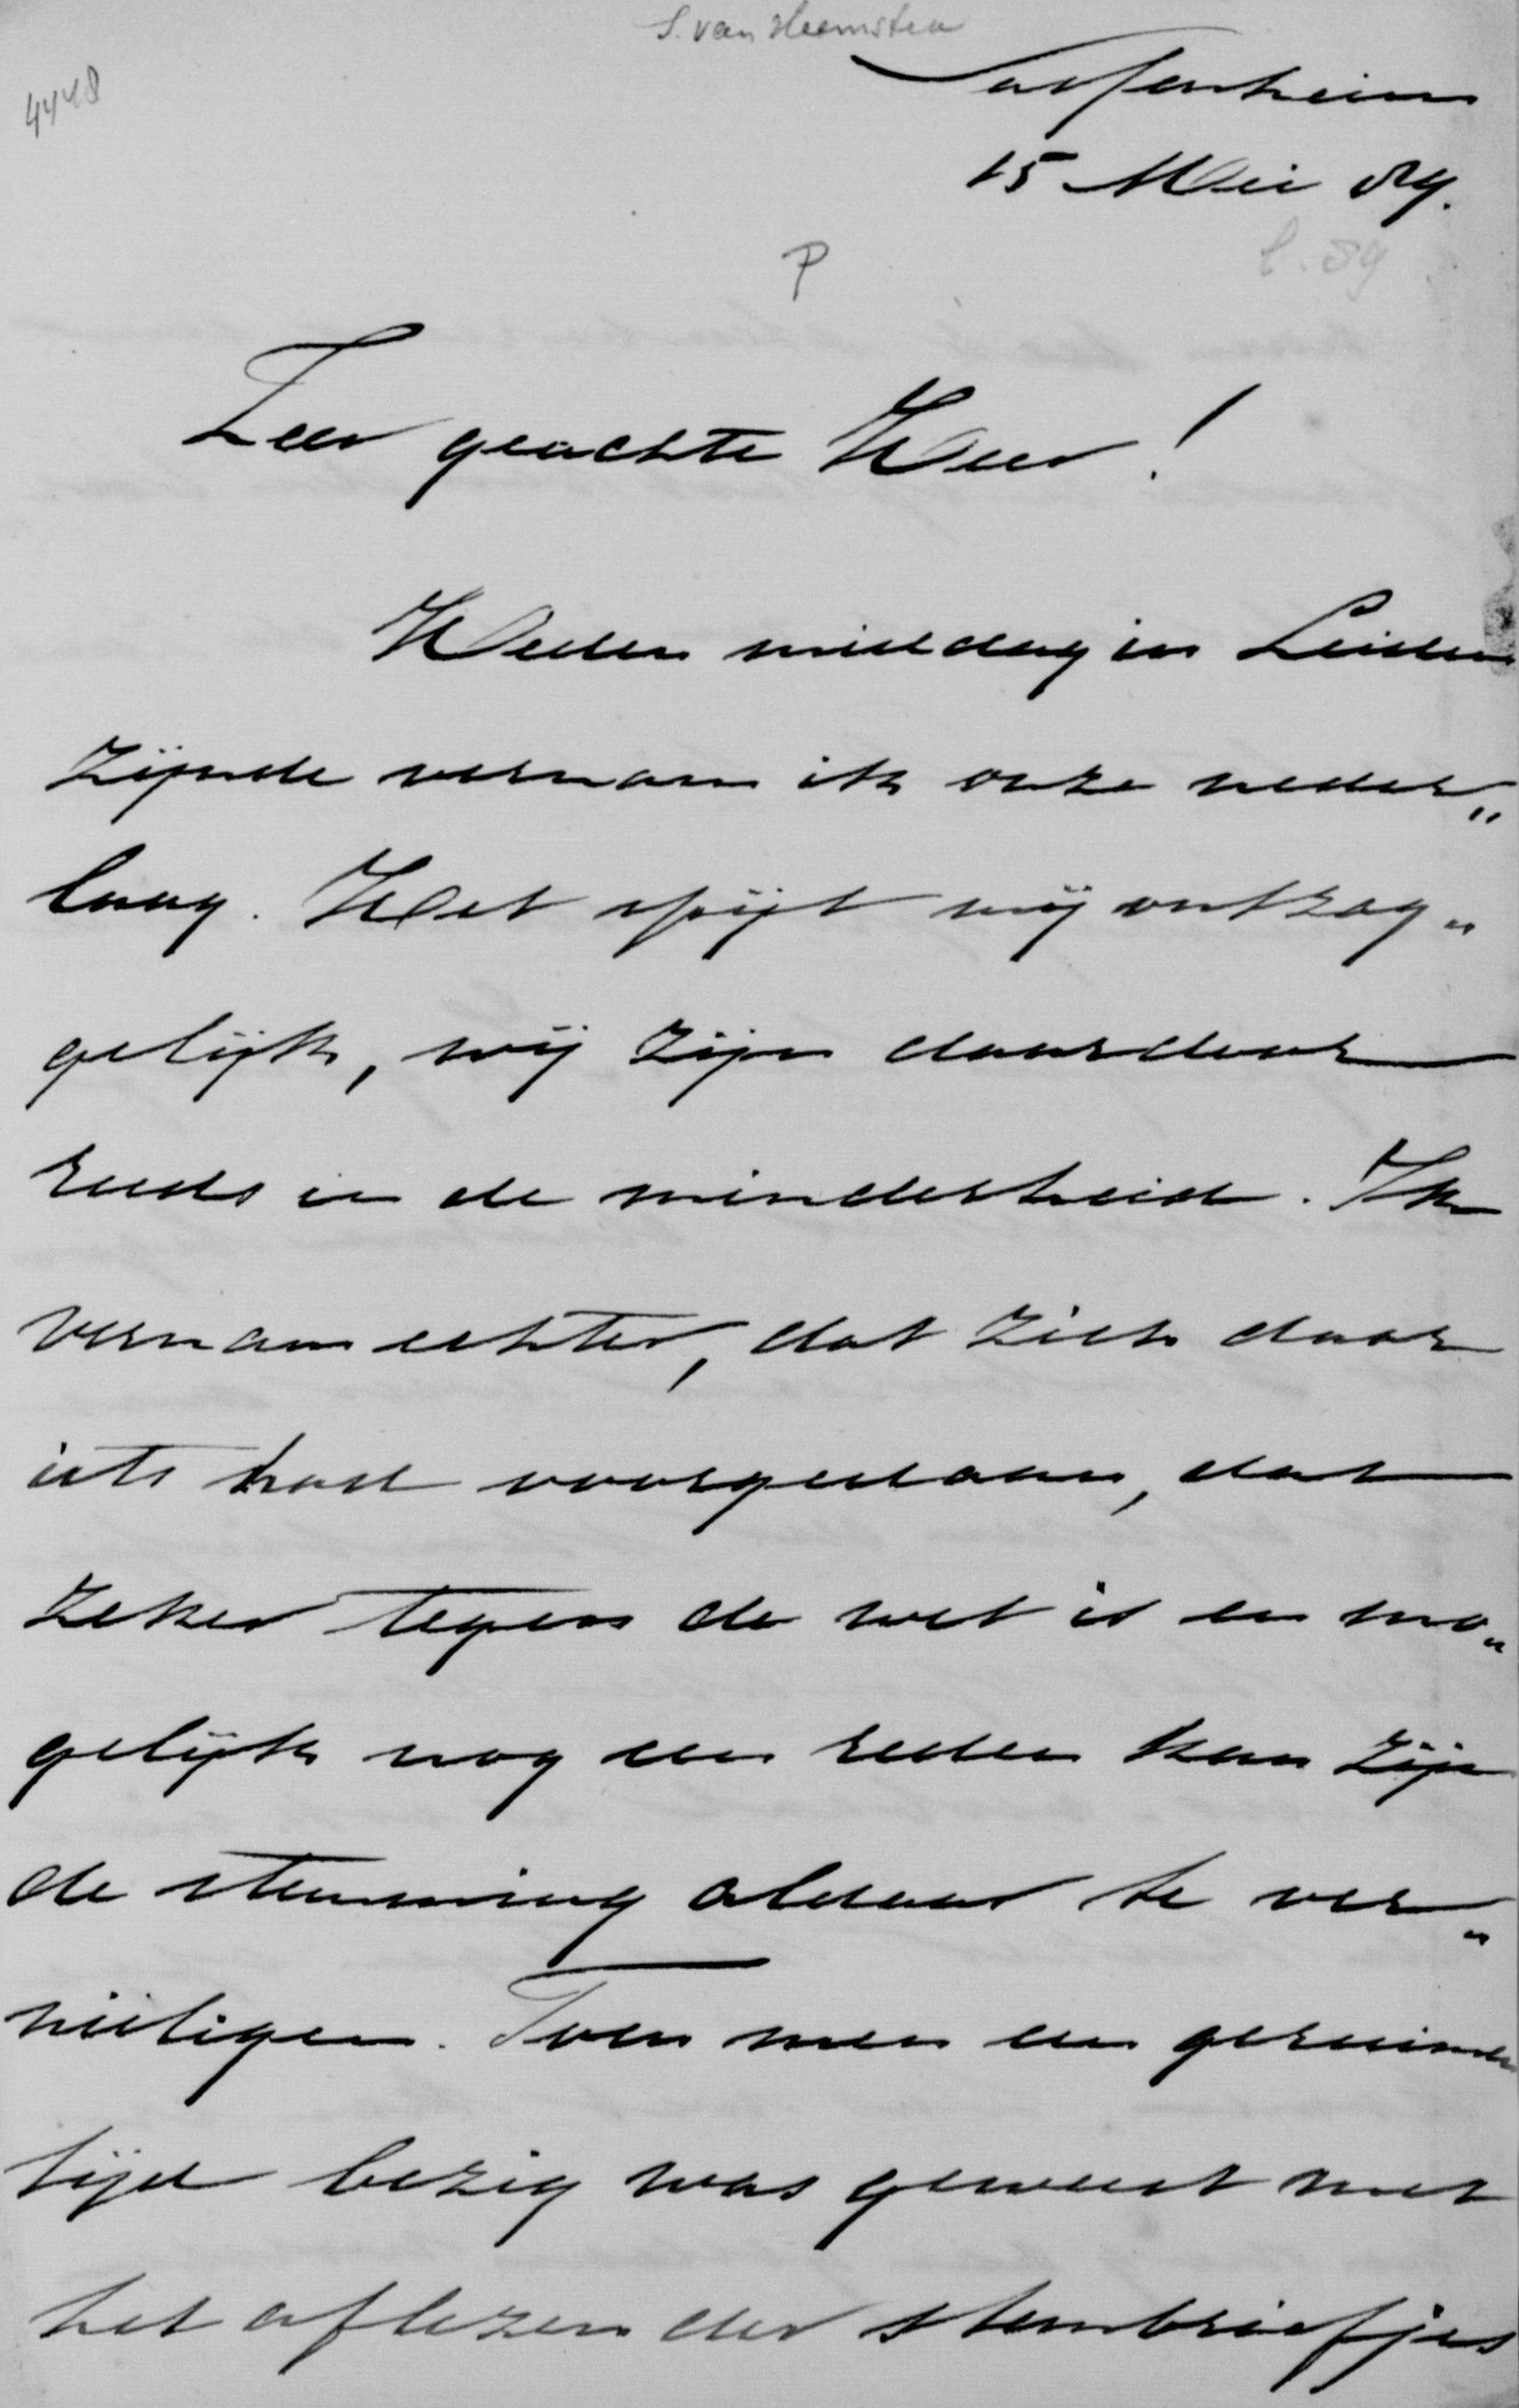 S. van Heemstra
4448
Sassenheim
15 Mei 89.
P
Zeer geachte Heer!
Heden middag in Leiden
zijnde vernam ik onze neder„
laag. Het spijt mij ontzag„
gelijk, wij zijn daardoor
reeds in de minderheid. Ik
vernam echter, dat zich daar
iets had voorgedaan, dat
zeker tegen de wet is en mo„
gelijk nog een reden kan zijn
de stemming aldaar te ver„
nietigen. Toen men een geruimen
tijd bezig was geweest met
het aflezen der stembriefjes